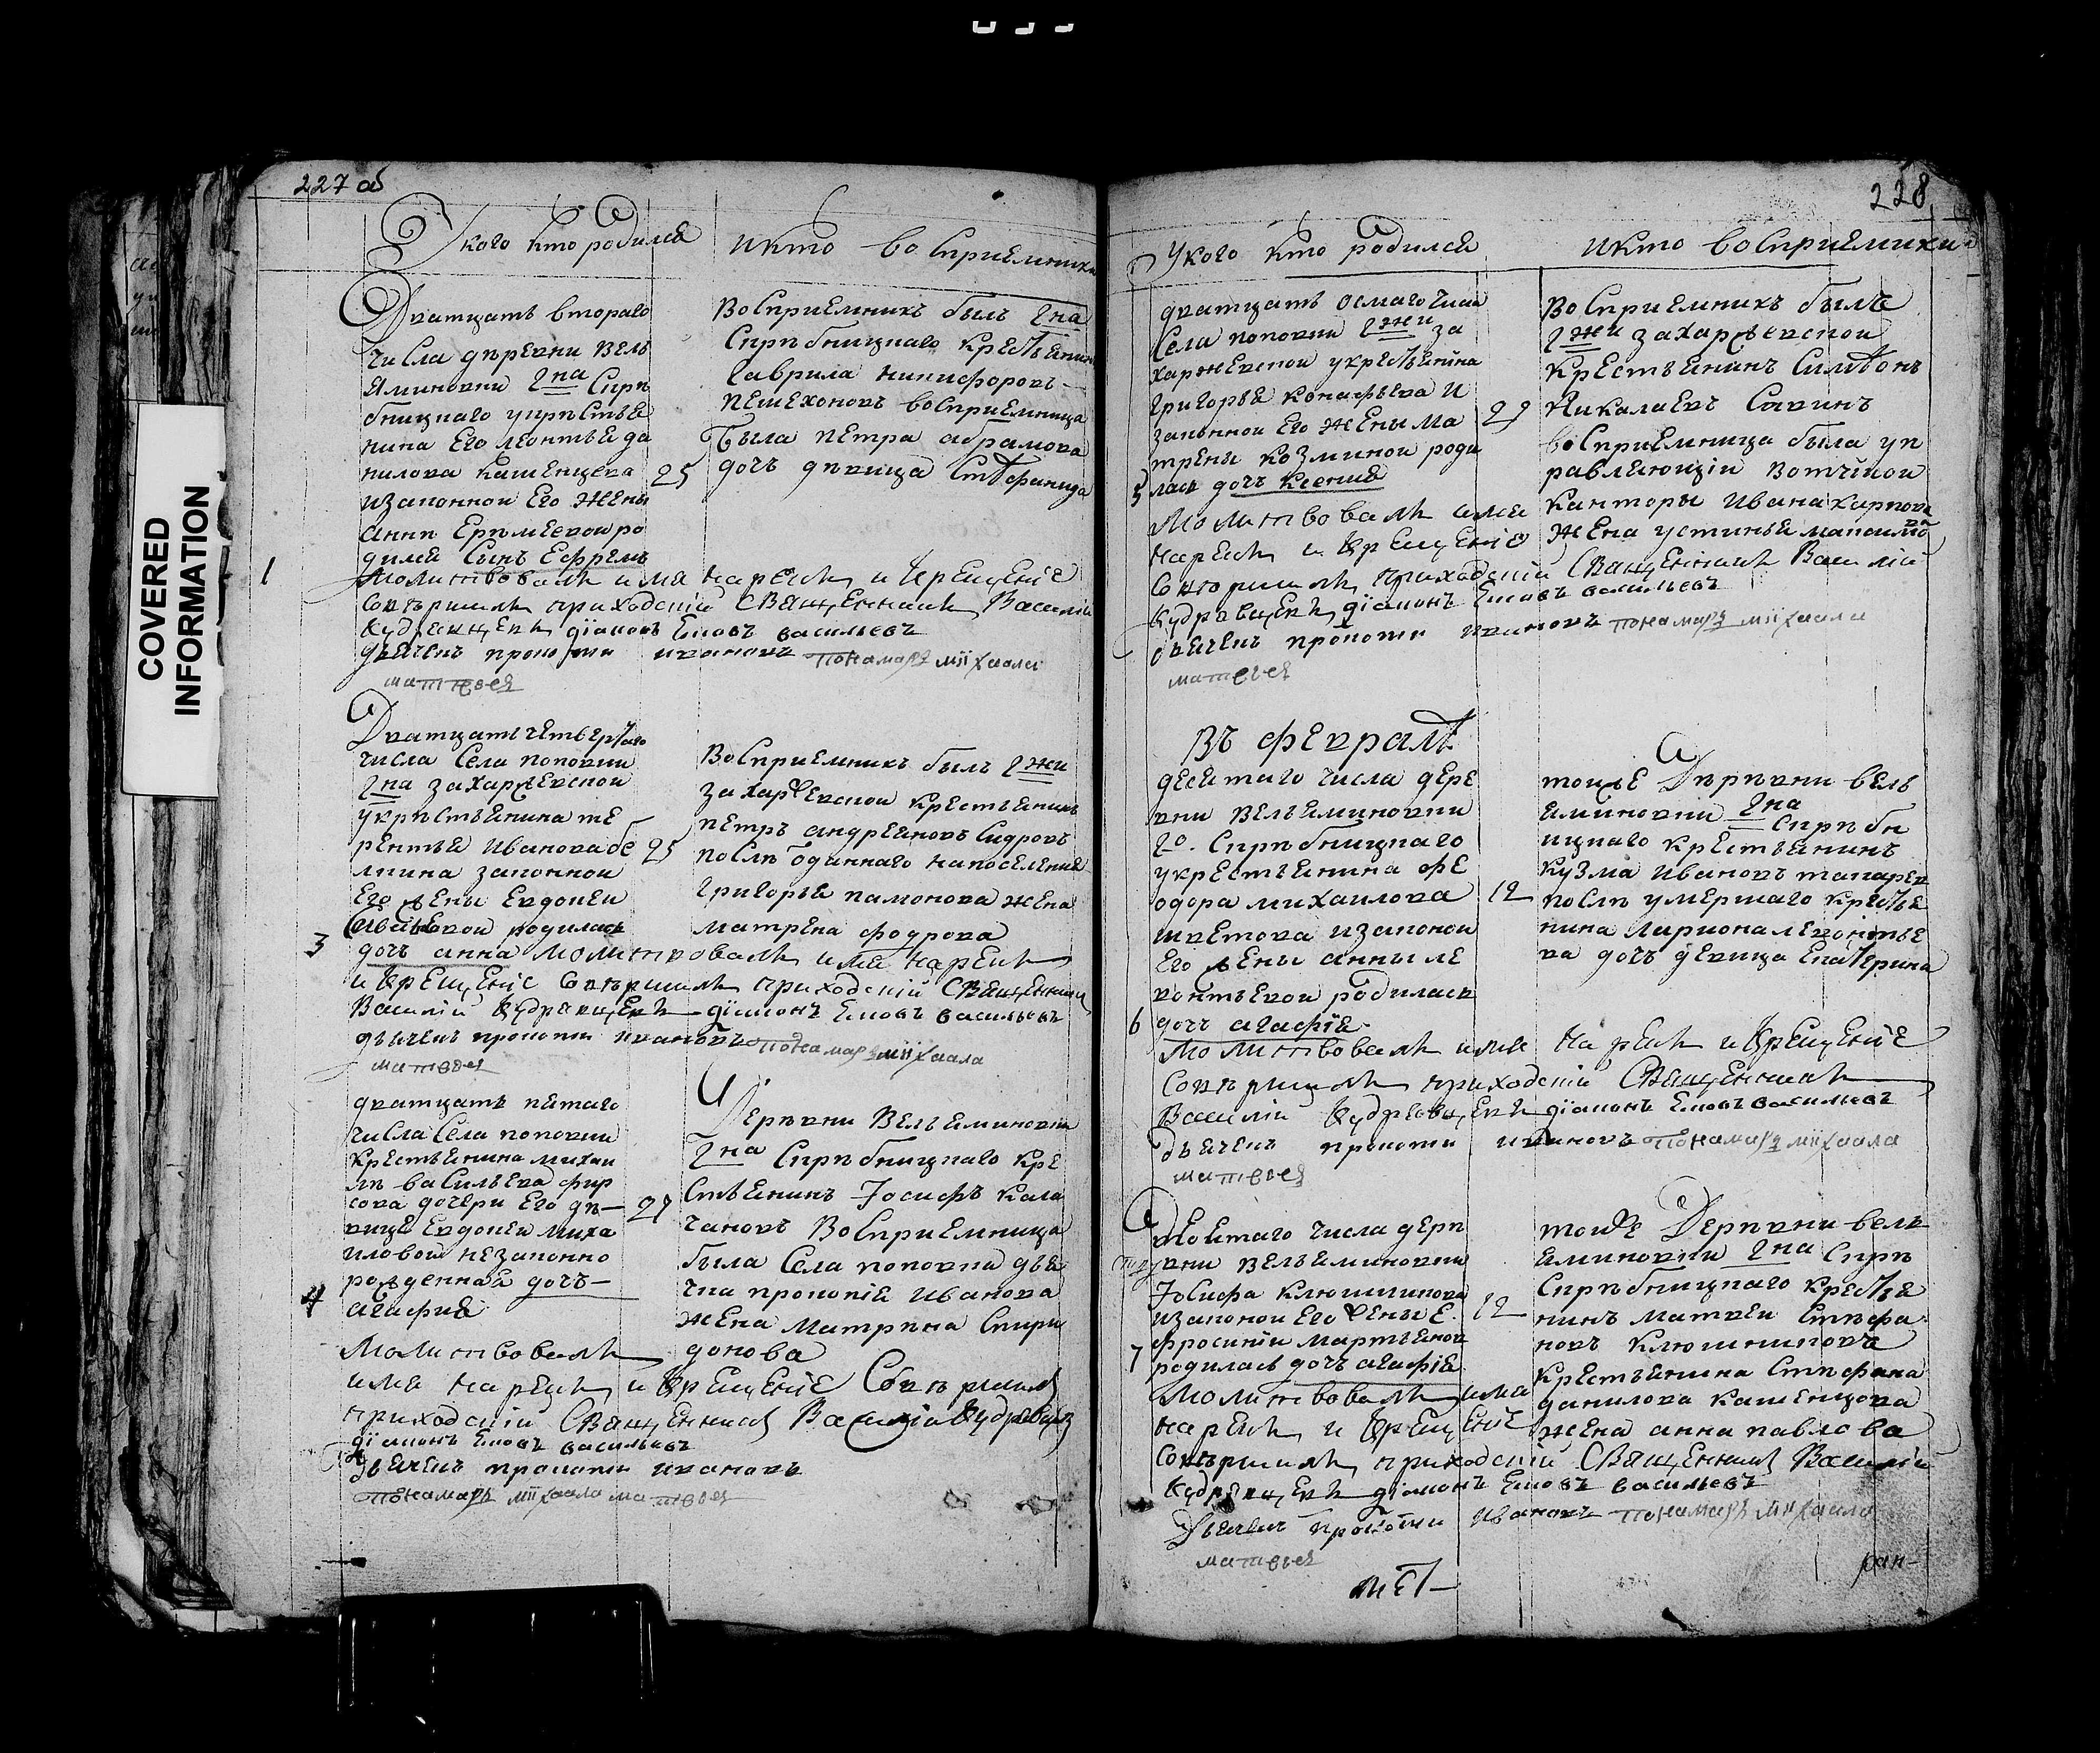 227 об
У кого кто родился
и кто восприемники
Дватцать втораго
числа деревни вель
яминовки гна Скрп
бницкаго у крпстья
нина Его леонтья да
нилова кашенцева
изаконной Его жены
анны Ерпмеевой ро
дился Сынъ Ефремъ
25
1
Восприемникъ былъ гна
Скрпбницкаго крестьянинъ
Гаврила никифоровъ
пешехоновъ восприемница
была петра абрамова
дочь двица Стефанида
Молитвовалъ имя нарекъ и крещенїе
Совершилъ приходскїй Священникъ Василїй
Кудрявцевъ дїаконъ Емовъ васильевъ
дьячекъ прокопи ивановъ понамарь миїхаила
матвѣя
Дватцать четвертаго
числа Села поповки
гна захаржевской
у крпстьянина те
рентья Иванова бе
лкина законной
Его жены Евдокеи
родилась
дочь анна Молитвовалъ имя нарекъ
25
3
Восприемникъ былъ гжи
захаржевской крестьянинъ
петръ андреяновъ Сидровъ
послп отданнаго на поселения
григорья памонова жена
матрена фодрова
и крещенїе Совершилъ приходскїй Священникъ
Василїй Кудрявцевъ дїаконъ Емовъ васильевъ
дьячекъ прокопи ивановъ понамарь миїхаила
матвея
дватцать пятаго
числа Села поповки
крестьянина михаи
лп васильева фир
сова дочери Его дв—
вице Евдокеи миха
иловой незаконно
рожденная дочь—
агафия
27
4
Деревни Вельяминовки
гна Скрпбницкаго кре
стьянинъ Іосифъ кала
чановъ Восприемница
была Села поповки дья
чка прокопїя иванова
жена матрпна Спири
донова
Молитвовалъ
имя нарекъ и крещенїе Совершилъ
приходскїй Священникъ Василїй Кудрявцевъ
дїаконъ Емовъ васильевъ
дьячекъ прокопи ивановъ
понамарь миїхаила матвея
228
У кого кто родился
и кто восприемники
дватцать осмаго числа
Села поповки гжи за
харжевской у крестьянина
григорья конафьева и
законной Его жены ма
трены козминой роди
лась дочь ксения
29
5
Восприемникъ былъ
гжи захаржевской
крестьянинъ Симеонъ
Никалаевъ Савинъ
восприемница была уп
равляющїй вотчиной
канторы ивана карпова
жена устинья макаимова
Молитвовалъ имя
нарекъ и крещенїе
Совершилъ приходскїй Священникъ Василїй
Кудрявцевъ дїаконъ Емовъ васильевъ
дьячекъ прокопи ивановъ понамарь миїхаила
матвея
Въ февралѣ
десятаго числа дере
вни вельяминовки
го. Скрпбницкаго
у крестьянина фе
одора михаилова
шветова изаконой
Его жены анны ле
вонтьевой родилась
дочь агафїя
12
6
тойже Дпрпвни вель
яминовки гна Скрпбн
ицкаго крестьянинъ
кузма ивановъ
послп умершаго крестья
нина лариона левонтье
ва дочь девица Екатерина
Молитвовалъ имя нарекъ и крещенїе
Совершилъ приходскїй Священникъ
Василїй Кудрявцевъ дїаконъ Емовъ васильевъ
дьячекъ прокопи ивановъ понамарь миїхаила
матвея
Тогоштаго числа дерп
вни вельяминовки
Іосифа клюшникова
изаконой Его жены Е.
фросинїи мартьяновой
родилась дочь агафїя
12
7
тойже Дерпвни веля
яминовки гна Скрп
Скрпбницкаго крестья
нинъ матвеи Стпфа
новъ клюшниковъ
крестьянина Стпфана
данилова кашенцова
жена анна павлова
Молитвовалъ имя
нарекъ и крещенїе
Совершилъ приходскїй Священникъ Василїй
Кудрявцевъ дїаконъ Емовъ васильевъ
Дьячекъ прокопи ивановъ понамарь миїхаила
матвея
COVERED
INFORMATION